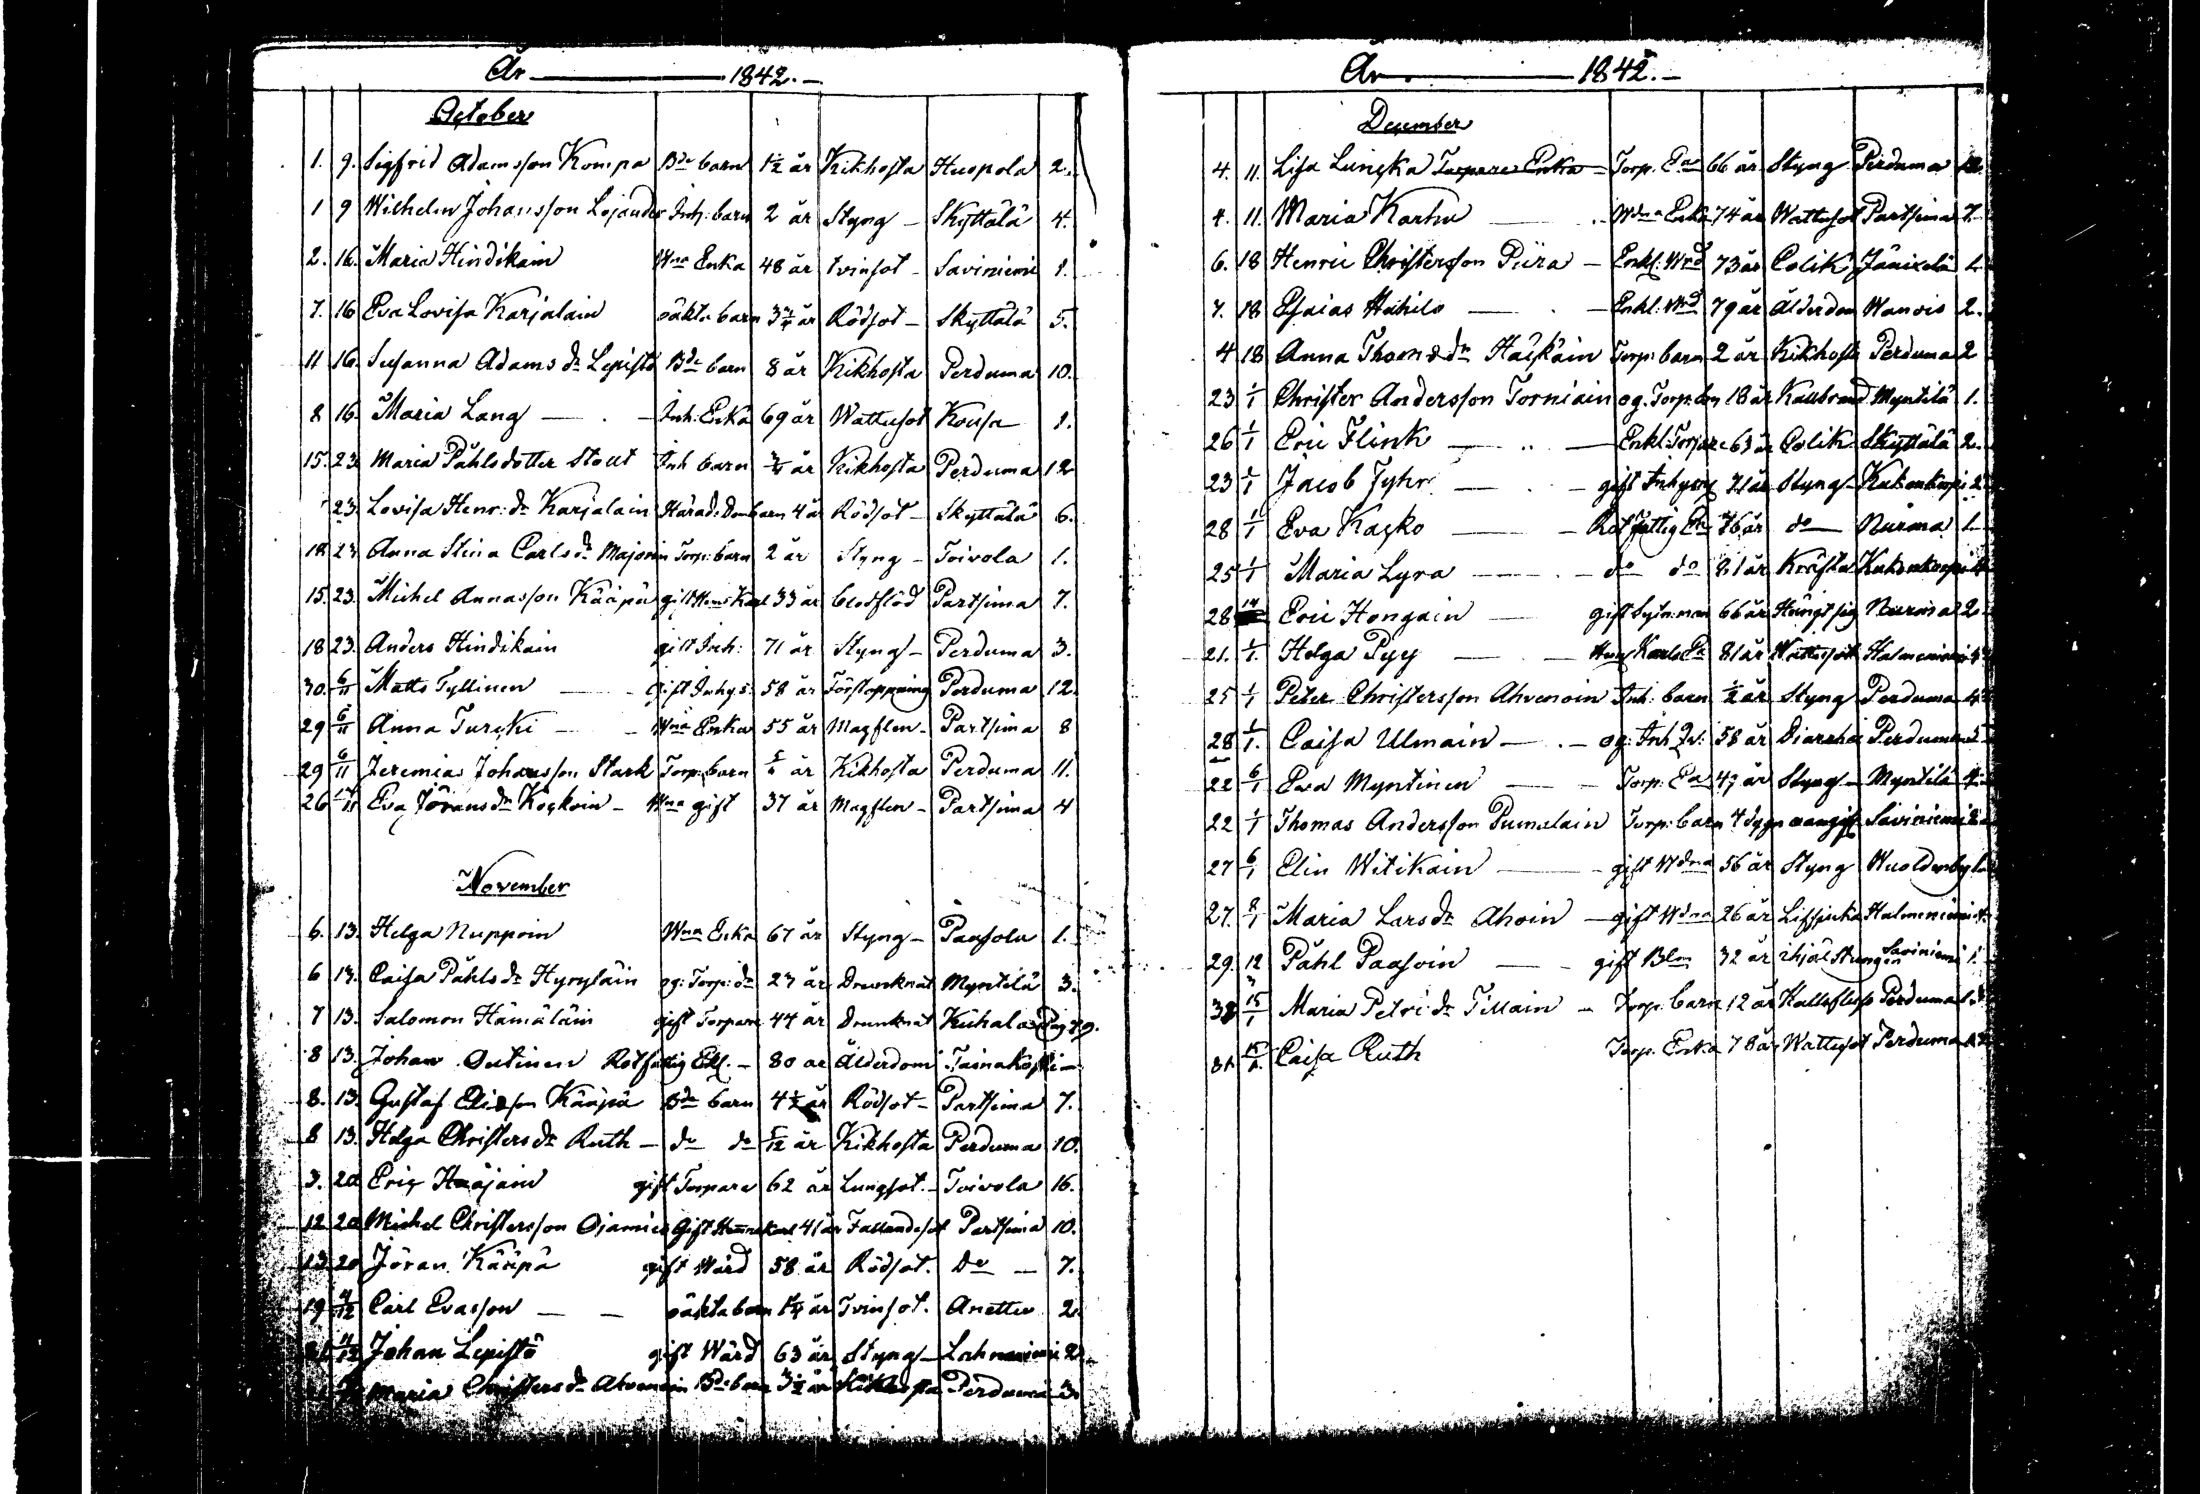 År 1842.
October
1. 9. Sigfrid Adamsson Kompa Bde barn 1½ år Kikhosta Huopola 2.
1 9 Wilhelm Johansson Lojander Inh: barn 2 år Styng Skyttälä 4.
2. 16. Maria Hindikain Wna Enka 48 år tvinsot Saviniemi 1.
7. 16 Eva Lovisa Karjalain oäkta barn 3¾ år Rödsot Skyttälä 5.
11 16. Susanna Adams dr Lepistö Bde barn 8 år Kikhosta Perduma 10.
8 16. Maria Lang Inh. Enka 69 år Wattusot Kousa 1.
15. 23. Maria Påhlsdotter Stout Inh barn ¾ år Kikhosta Perduma 12
23. Lovisa Henr: dr Karjalain Härads Dom barn 4 år Rödsot Skyttälä 6.
18 23 Anna Stina Carls dr Majorin Torp: barn 2 år Styng Toivola 1.
15. 23. Michel Annasson Kääpä gift Hems Karl 33 år blodflöd Partsima 7.
18 23. Anders Hindikain gift Inh: 71 år Styng Perduma 3.
30. 6/11 Matts Tyllinen gift Inhys: 58 år Förstoppning Perduma 12.
29 6/11 Anna Turcki Wna Enka 55 år Magflen Partsima 8
29 6/11 Jeremias Johansson Stark Torp. barn år Kikhosta Perduma 11.
26 Eva Jörans dr Kockoin Wna gift 37 år Magflen Partsima 4
November
6. 13. Helga Nuppoin Wna Enka 67 år Styng Paasola 1.
6 13. Caisa Påhls dr Hyrylain og: Torp: dr 23 år Drunknat Myntilä 3.
7 13. Salomon Hämäläin gift Torpare 44 år Drunknat Kuhala Pag 79.
8 13. Johan Outinen Rotfattig Ekl. 80 år Ålderdom Tainakoski
8. 13. Gustaf Eliasson Kääpä Bde barn 4½ år Rödsot Partsima 7.
8 13. Helga Christers dr Ruth do do 5/12 år Kikhosta Perduma 10.
3. 20 Eric Haajain gift Torpare 62 år Lungsot. Toivola 16.
12 20 Michel Christersson Ojamies Gift Hemmekarl 41 år Fallandesot Partsima 10.
13. 20 Jöran Kääpä gift Wärd 58 år Rödsot. Do 7.
19 4/12 Carl Evasson oäkta barn 1¼ år Tvinsot. Anettu 2
4/12 Johan Lepistö gift Wärd 63 år Styng Lahnaniemi 2.
Maria Christers dr Ahvenain Bde barn 3½ år Kikhosta Perduma 3.
År 1842.
December
4. 11. Lisa Luncka Torpare Enka Torp. Ea 66 år Styng Perduma 12.
4. 11. Maria Karhu Wdna Enka 74 år Wattusot Partsima 7.
6. 18 Henric Christersson Piira Enkl: Wrd 73 år Colik Jänixelä 1.
7. 18 Esaias Hahilo Enkl: Wrd 79 år Ålderdom Wanois 2.
4 18 Anna Thoms dr Häckäin Torp: barn 2 år Kikhosta Perduma 2
23 1/1 Christer Andersson Torniain og. Torp. son 18 år Kallbrand Myntilä 1.
26 1/1 Eric Flink Enkl: Torpare 63 år Colik Skyttälä 2.
23 1/1 Jacob Fyhr gift Inhysg 71 år Styng Kukonkorpi 2
28 1/1 Eva Kacko Rot fattig Ea 76 år do Nurma 1
25 1/1 Maria Lyra do do 81 år Kräfta Kukonkorpi
28 Eric Hongain gift Sytn: man 66 år Hängt sig Nurma 2
21. 1/1. Helga Pyy Hems Karls Ea 81 år Wattusot Halmeniemi
25 1/1 Peter Christersson Ahvenain Inh: barn ½ år Styng Perduma 4
28 1/1. Caisa Ulmain og: Inh Qv: 58 år Diarrhé Perduma
22 6/1 Eva Myntinen Torp: Ea 47 år Styng Myntilä 4
22 1/1 Thomas Andersson Pumalain Torp: barn 4 dygn oangif Saviniemi 2
27 6/1 Elin Witikain gift Wdna 56 år Styng Wuoldenby
27. 8/1 Maria Lars dr Ahoin gift Wdna 26 år Lifssjuka Halmeniemi
29. 12 Påhl Paasoin gift Blm 32 år ihjäl Stungen Saviniemi 1.
30 15/1 Maria Petri dr Tillain Torp. barn 12 år Hallsfluss Perduma
31. 15/1. Caisa Ruth Torp. Enka 78 år Wattusot Perduma 12